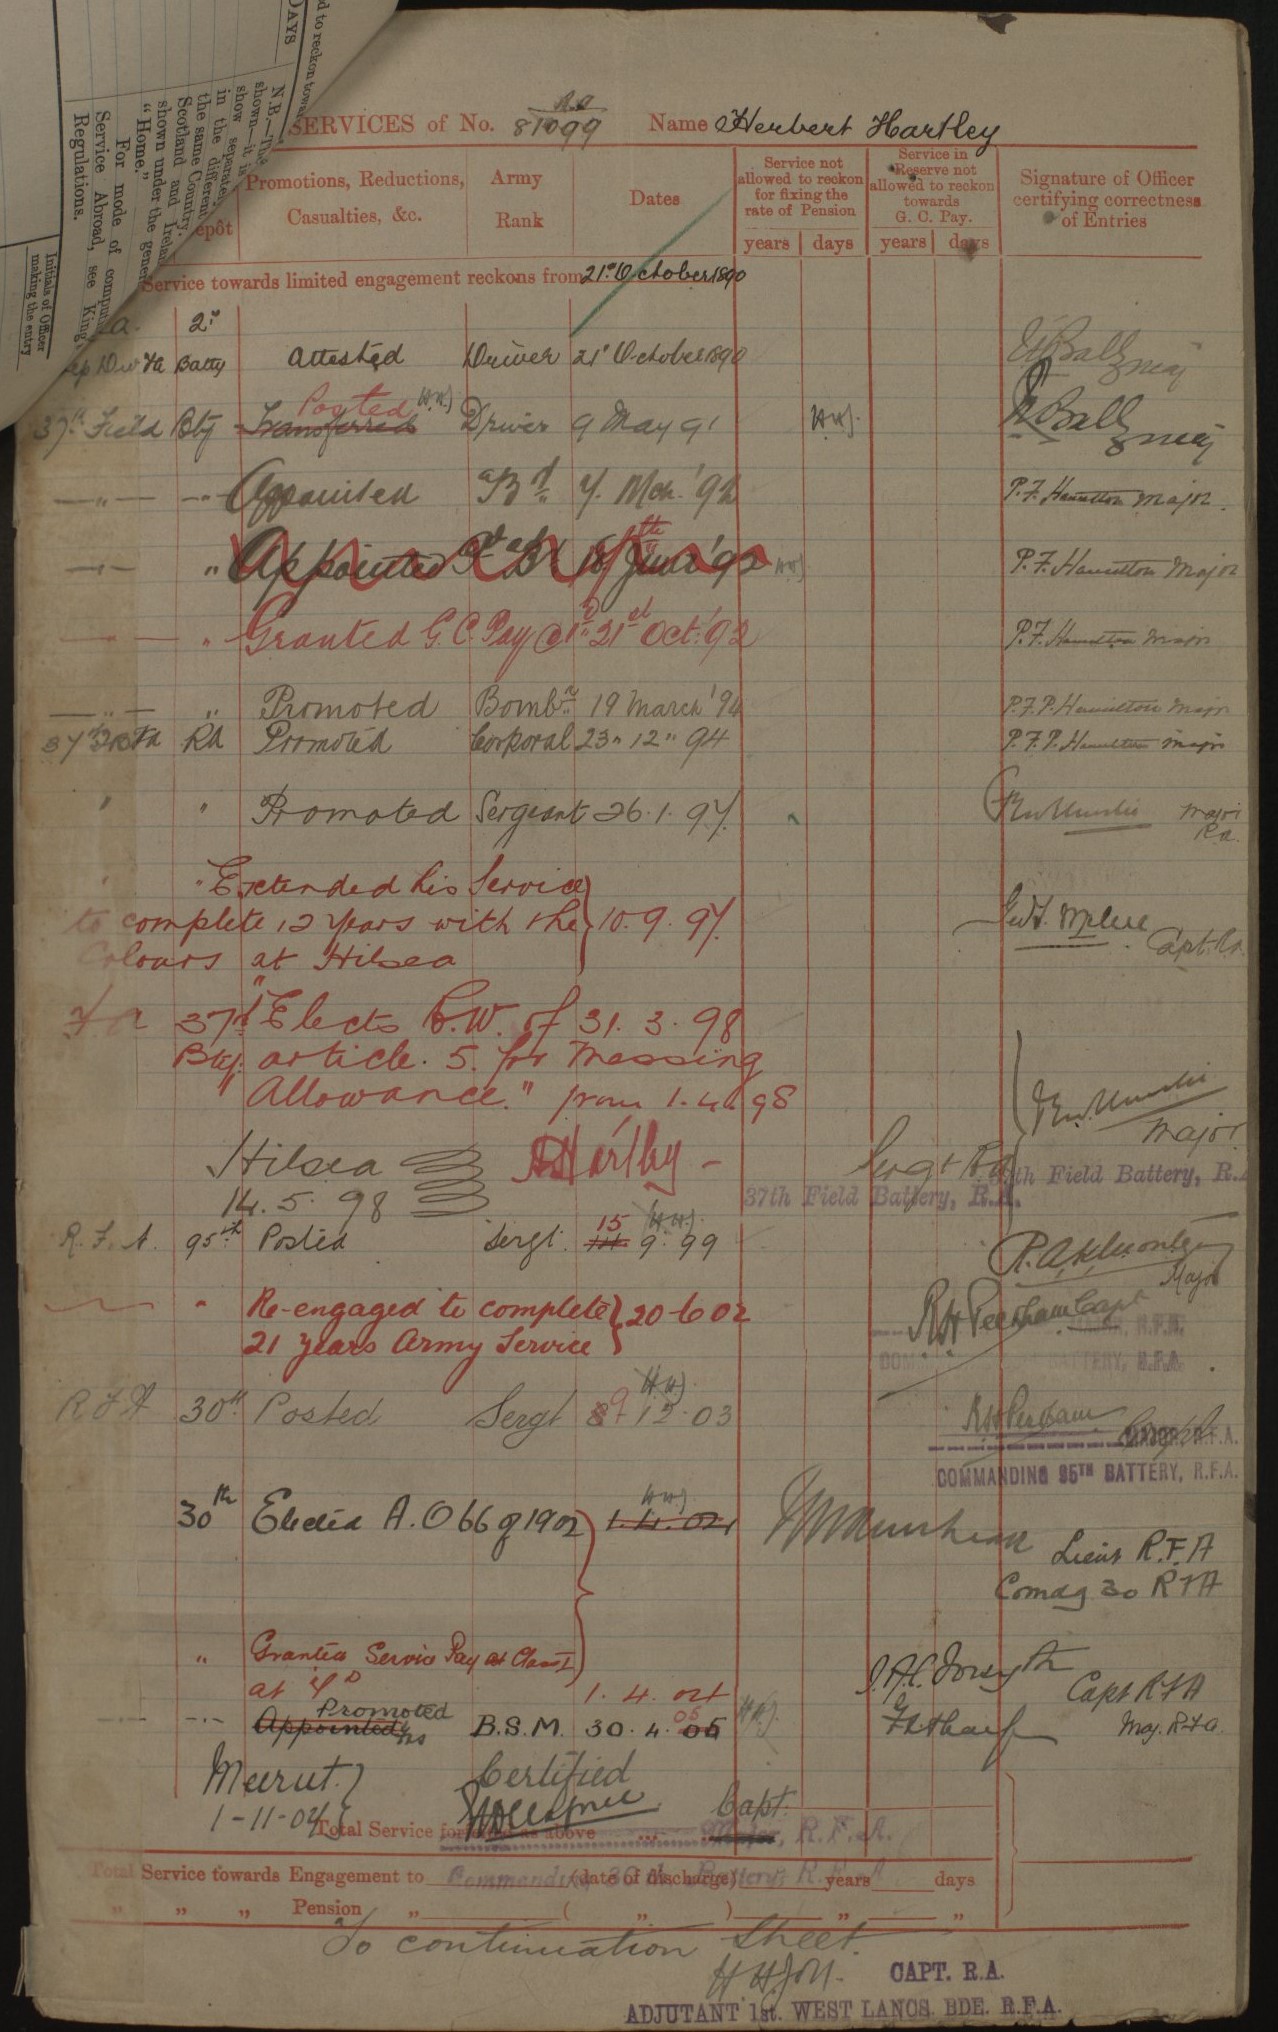 d to reckon towa
DAYS
N.B.—The
shown—it is
show separate
in the different
the same Country.
Scotland and Irela
shown under the gener
"Home."
For mode of comput
Service Abroad, see King
Regulations.
Initials of Officer
making the entry
R.A
SERVICES of No. 81099 Name Herbert Hartley
epôt
Promotions, Reductions, Casualties, &c.
Army Rank
Dates
Service not allowed to reckon for fixing the rate of Pension
years days
Service in Reserve not allowed to reckon towards G. C. Pay.
years days
Signature of Officer certifying correctness of Entries
Service towards limited engagement reckons from 21st October 1890
a. 2nd
Batty Attested Driver 21st October 1890 Ball Maj
37th Field Bty Transferred Posted H.H.J. Driver 9 May 91 H.H.J. Ball Maj
—"— —"— Appointed a Br 7. Mch. '92 P.F. Hamilton Major.
—"— " Appointed 18th June '92 H.H.J. P.F. Hamilton Major
— " Granted G.C. Pay @ 1d 21st Oct: '92 P.F. Hamilton Major
—"— " Promoted Bombr 19 March '94 P.F.P. Hamilton Major
37th RA Promoted Corporal 23" 12" 94 P.F.P. Hamilton Major
" " Promoted Sergeant 26.1.97. Major
R.A.
" " Extended his Service
to complete 12 Years with the } 10.9.97.
Colours at Hilsea
Capt. R.A.
F A 37th "Elects R.W. of 31.3.98
Bty. article. 5. for Messing
" Allowance." from 1.4.98
Major
Hilsea H Hartley – Sergt R.A.
14.5.98
37th Field Battery, R.A.
37th Field Battery, R.A.
R.F.A. 95th Posted Sergt. 14 15 9.99 H.H.J.
R.A. Montgom Major
" Re-engaged to complete } 20-6-02
21 years Army Service
R H Peckham Capt
BATTERY, R.F.A.
R F A 30th Posted Sergt 9 12.03 H.H.J.
MAJOR, R.F.A.
COMMANDING 95TH BATTERY, R.F.A.
30th Elected A.O 66 of 1902 1.4.02 H.H.J.
Lieut R.F.A
Comdg 30 RFA
" Granted Service Pay at Class I
at D 1.4.04
J.A.C. Forsyth Capt RFA
—"— —"— Appointed Promoted B.S.M. 30.4.05 05 H.H.J. Maj. R.F.A.
Meerut }
1-11-04
Certified
Capt.
Total Service forfeited as above ... Major, R.F.A.
Total Service towards Engagement to (date of discharge) years days
Commanding 30th Battery R.F.A
" " " Pension " ( " ) " "
To continuation Sheet.
H H Joll. CAPT. R.A.
ADJUTANT 1st. WEST LANCS. BDE. R.F.A.